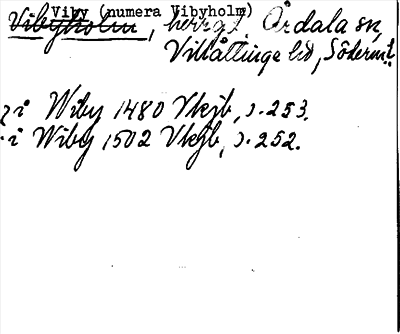 Viby (numera Vibyholm)
Vibyholm, herrg. Årdala sn,
Villåttinge hd, Söderml.
i Wiby 1480 Vkjb, s. 253.
i Wiby 1502 Vkjb, s. 252.